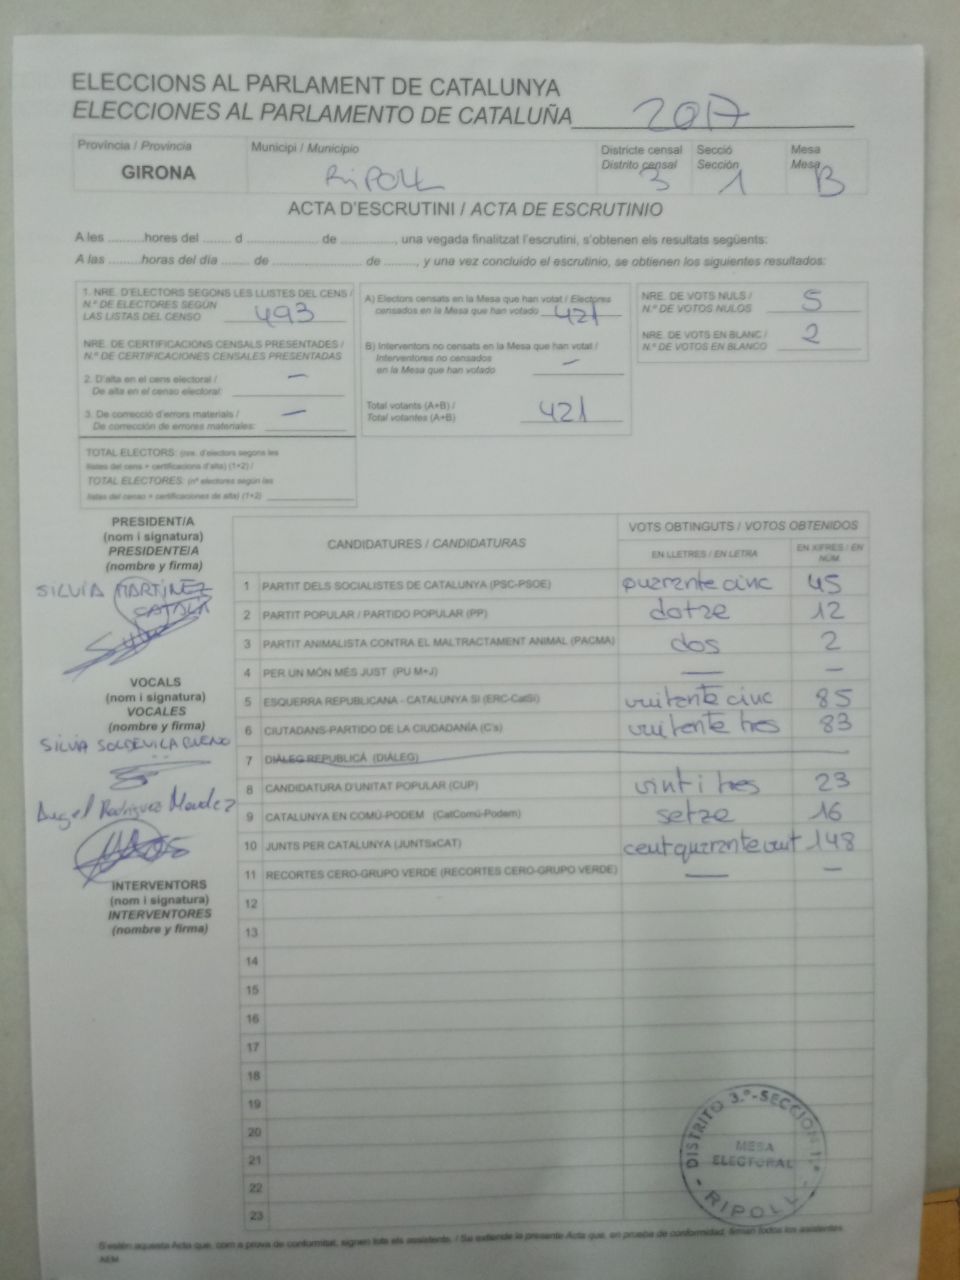 ELECCIONS AL PARLAMENT DE CATALUNYA
ELECCIONES AL PARLAMENTO DE CATALUÑA 2017
Província / Provincia
GIRONA
Municipi / Municipio
RIPOLL
Districte censal
Distrito censal
3
Secció
Sección
1
Mesa
Mesa
B
ACTA D'ESCRUTINI / ACTA DE ESCRUTINIO
A les ...........hores del ........ d .................... de ..............., una vegada finalitzat l'escrutini, s'obtenen els resultats següents:
A las ..........horas del día ........ de ............................ de .........., y una vez concluido el escrutinio, se obtienen los siguientes resultados:
1. NRE. D'ELECTORS SEGONS LES LLISTES DEL CENS /
N.º DE ELECTORES SEGÚN
LAS LISTAS DEL CENSO 493
NRE. DE CERTIFICACIONS CENSALS PRESENTADES /
N.º DE CERTIFICACIONES CENSALES PRESENTADAS
2. D'alta en el cens electoral /
De alta en el censo electoral: —
3. De correcció d'errors materials /
De corrección de errores materiales: —
TOTAL ELECTORS: (nre. d'electors segons les
llistes del cens + certificacions d'alta) (1+2) /
TOTAL ELECTORES: (nº electores según las
listas del censo + certificaciones de alta) (1+2)
A) Electors censats en la Mesa que han votat / Electores
censados en la Mesa que han votado 421
B) Interventors no censats en la Mesa que han votat /
Interventores no censados
en la Mesa que han votado —
Total votants (A+B) /
Total votantes (A+B) 421
NRE. DE VOTS NULS /
N.º DE VOTOS NULOS 5
NRE. DE VOTS EN BLANC /
N.º DE VOTOS EN BLANCO 2
PRESIDENT/A
(nom i signatura)
PRESIDENTE/A
(nombre y firma)
SILVIA MARTÍNEZ
CATALÀ
VOCALS
(nom i signatura)
VOCALES
(nombre y firma)
SILVIA SOLDEVILA BUENO
Angel Rodriguez Mendez
INTERVENTORS
(nom i signatura)
INTERVENTORES
(nombre y firma)
CANDIDATURES / CANDIDATURAS
VOTS OBTINGUTS / VOTOS OBTENIDOS
EN LLETRES / EN LETRA
EN XIFRES / EN NÚM.
1 PARTIT DELS SOCIALISTES DE CATALUNYA (PSC-PSOE) quaranta cinc 45
2 PARTIT POPULAR / PARTIDO POPULAR (PP) dotze 12
3 PARTIT ANIMALISTA CONTRA EL MALTRACTAMENT ANIMAL (PACMA) dos 2
4 PER UN MÓN MÉS JUST (PU M+J) — —
5 ESQUERRA REPUBLICANA - CATALUNYA SÍ (ERC-CatSí) vuitanta cinc 85
6 CIUTADANS-PARTIDO DE LA CIUDADANÍA (C's) vuitanta tres 83
7 DIÀLEG REPUBLICÀ (DIÀLEG)
8 CANDIDATURA D'UNITAT POPULAR (CUP) vint i tres 23
9 CATALUNYA EN COMÚ-PODEM (CatComú-Podem) setze 16
10 JUNTS PER CATALUNYA (JUNTSxCAT) cent quaranta vuit 148
11 RECORTES CERO-GRUPO VERDE (RECORTES CERO-GRUPO VERDE) — —
12
13
14
15
16
17
18
19
20
21
22
23
DISTRITO 3.º - SECCIÓN 1.ª
MESA
ELECTORAL
- RIPOLL -
S'estén aquesta Acta que, com a prova de conformitat, signen tots els assistents. / Se extiende la presente Acta que, en prueba de conformidad, firman todos los asistentes.